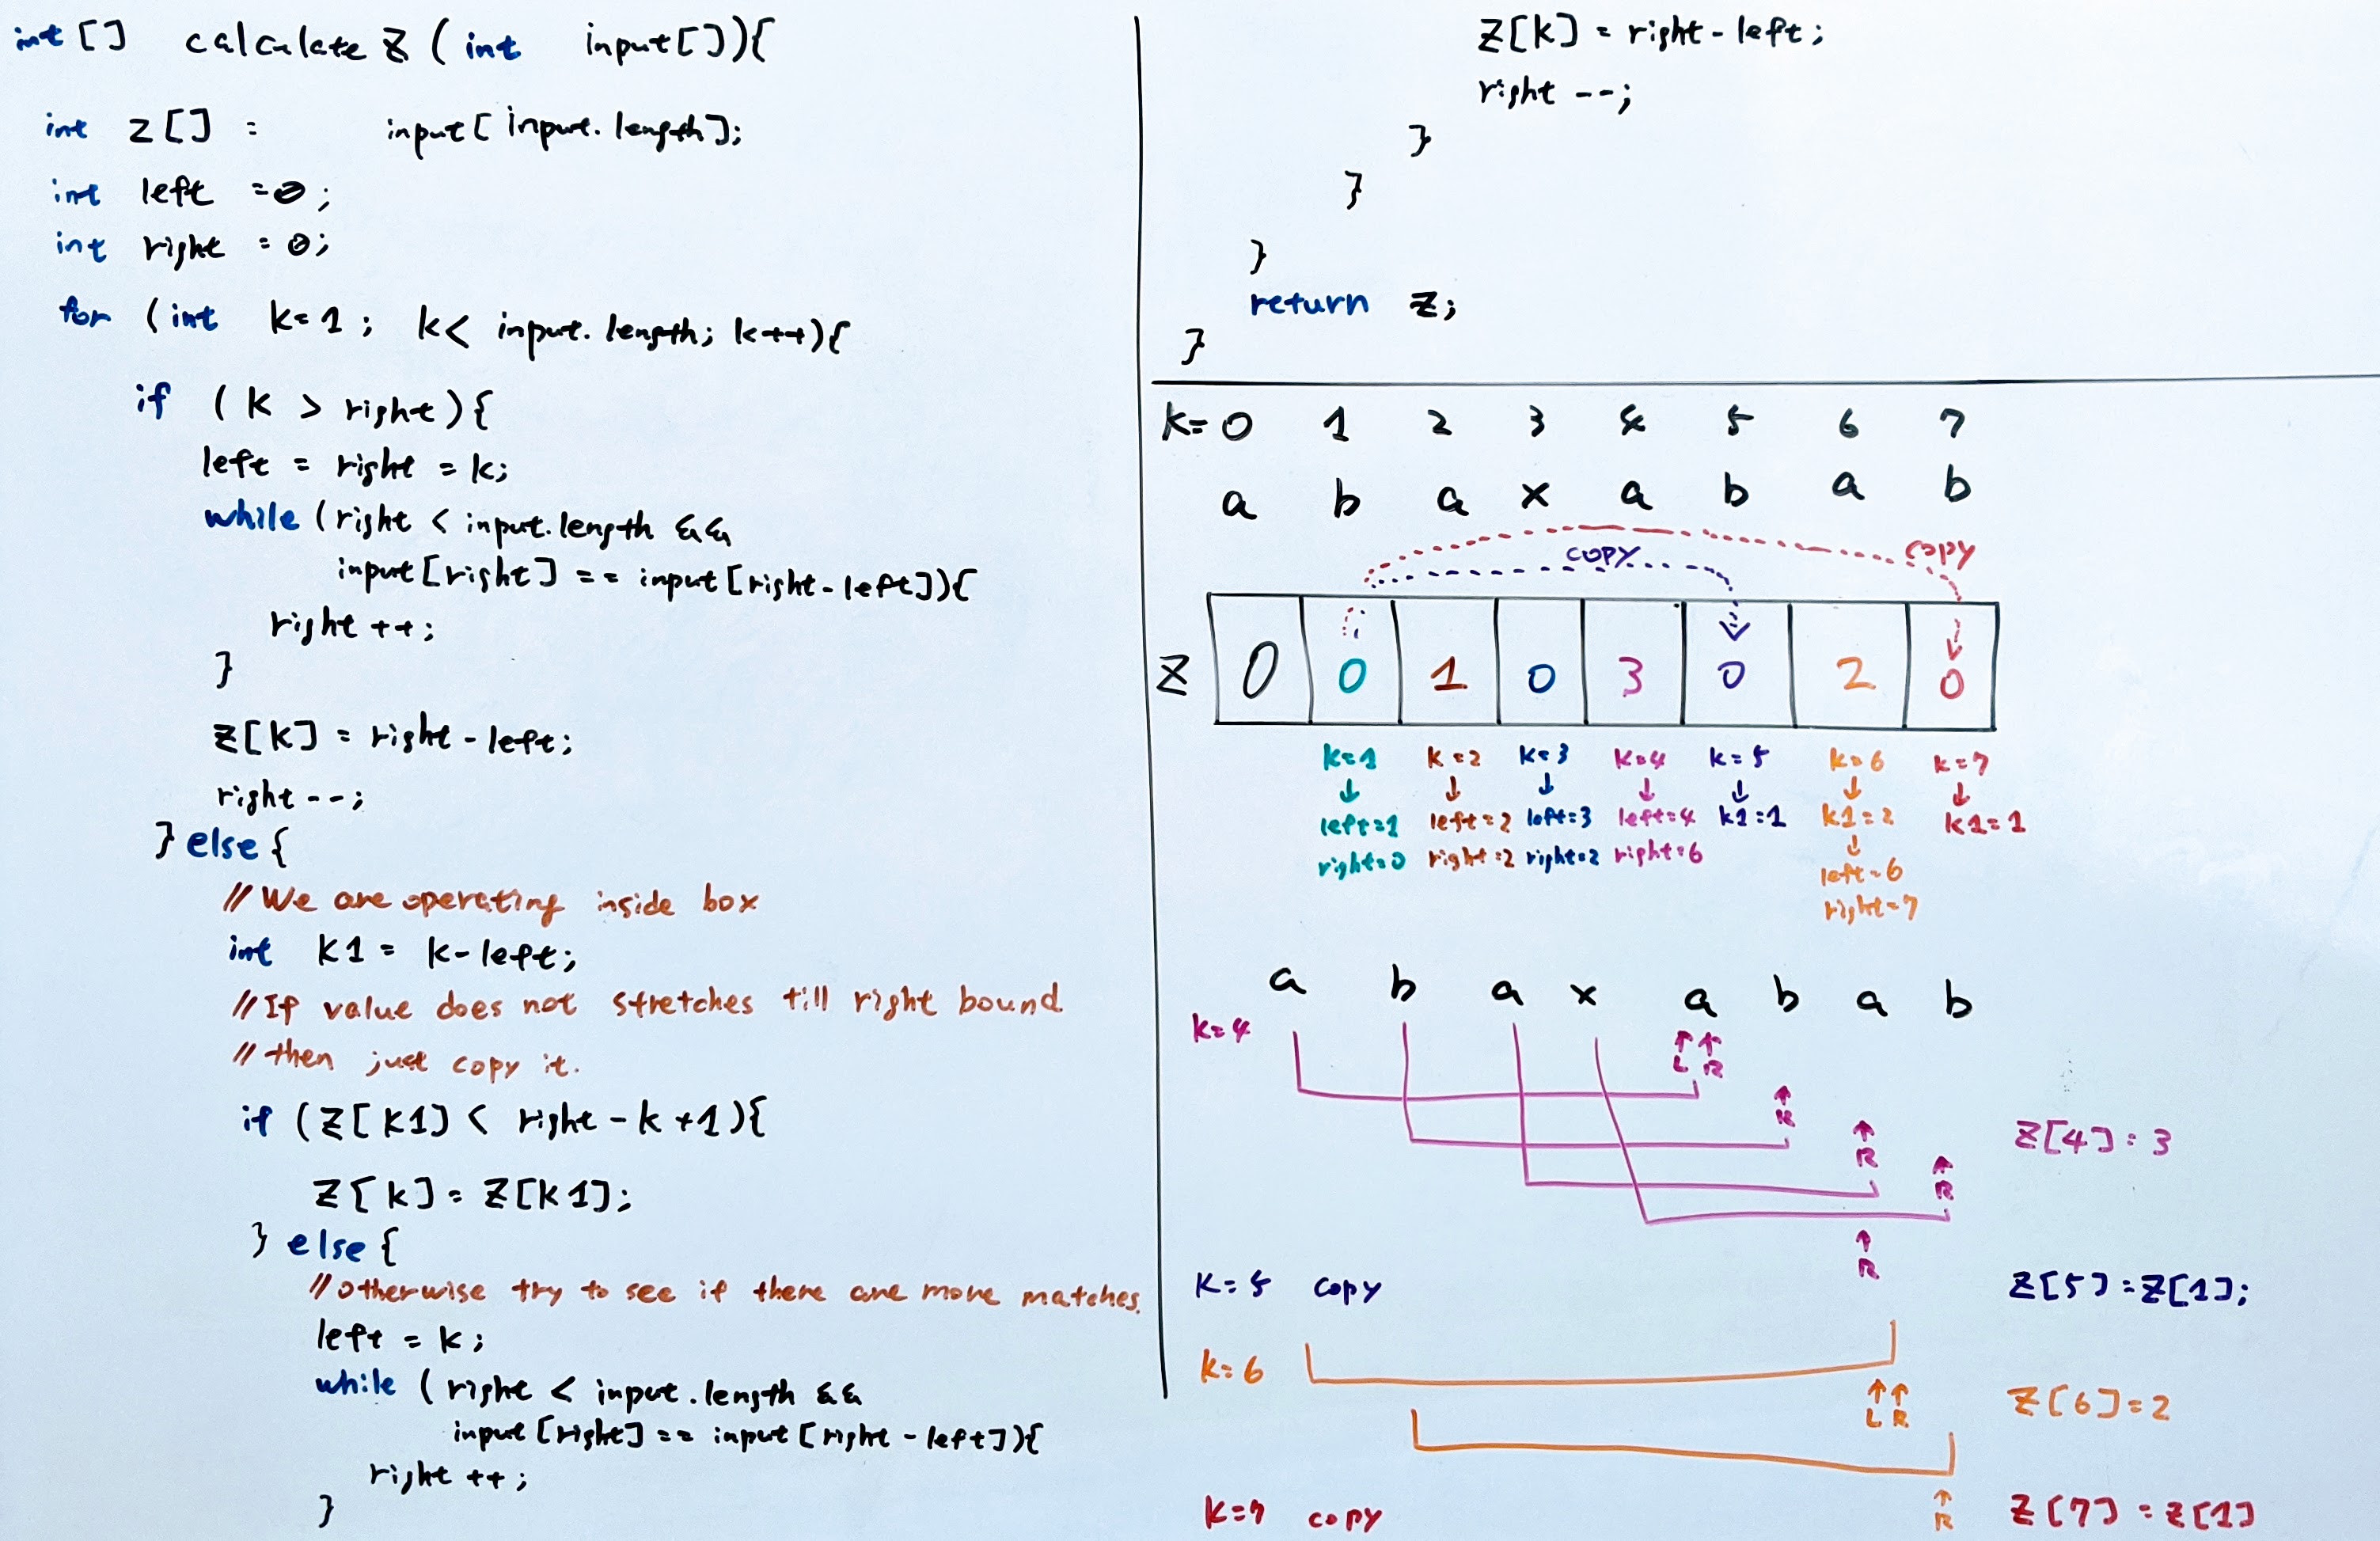 int[] calculateZ(int input[]){
int Z[] = input[input.length];
int left =0;
int right =0;
for (int k=1; k< input.length; k++){
if (k > right){
left = right = k;
while (right < input.length &&
input[right] == input[right-left]){
right ++;
}
Z[k] = right-left;
right --;
} else {
//We are operating inside box
int k1 = k-left;
//If value does not stretches till right bound
//then just copy it.
if (Z[k1] < right-k+1){
Z[k] = Z[k1];
} else {
//otherwise try to see if there are more matches.
left = k;
while (right < input.length &&
input[right] == input[right-left]){
right ++;
}
Z[k] = right-left;
right --;
}
}
}
return Z;
}
k= 0 1 2 3 4 5 6 7
a b a x a b a b
copy copy
Z 0 0 1 0 3 0 2 0
k=1 k=2 k=3 k=4 k=5 k=6 k=7
left=1 left=2 left=3 left=4 k1=1 k1=2 k1=1
right=0 right=2 right=2 right=6
left=6
right=7
a b a x a b a b
k=4
L R
R
Z[4]=3
R
R
R
k=5 copy Z[5]=Z[1];
k=6
L R
Z[6]=2
R
k=7 copy Z[7]=Z[1]